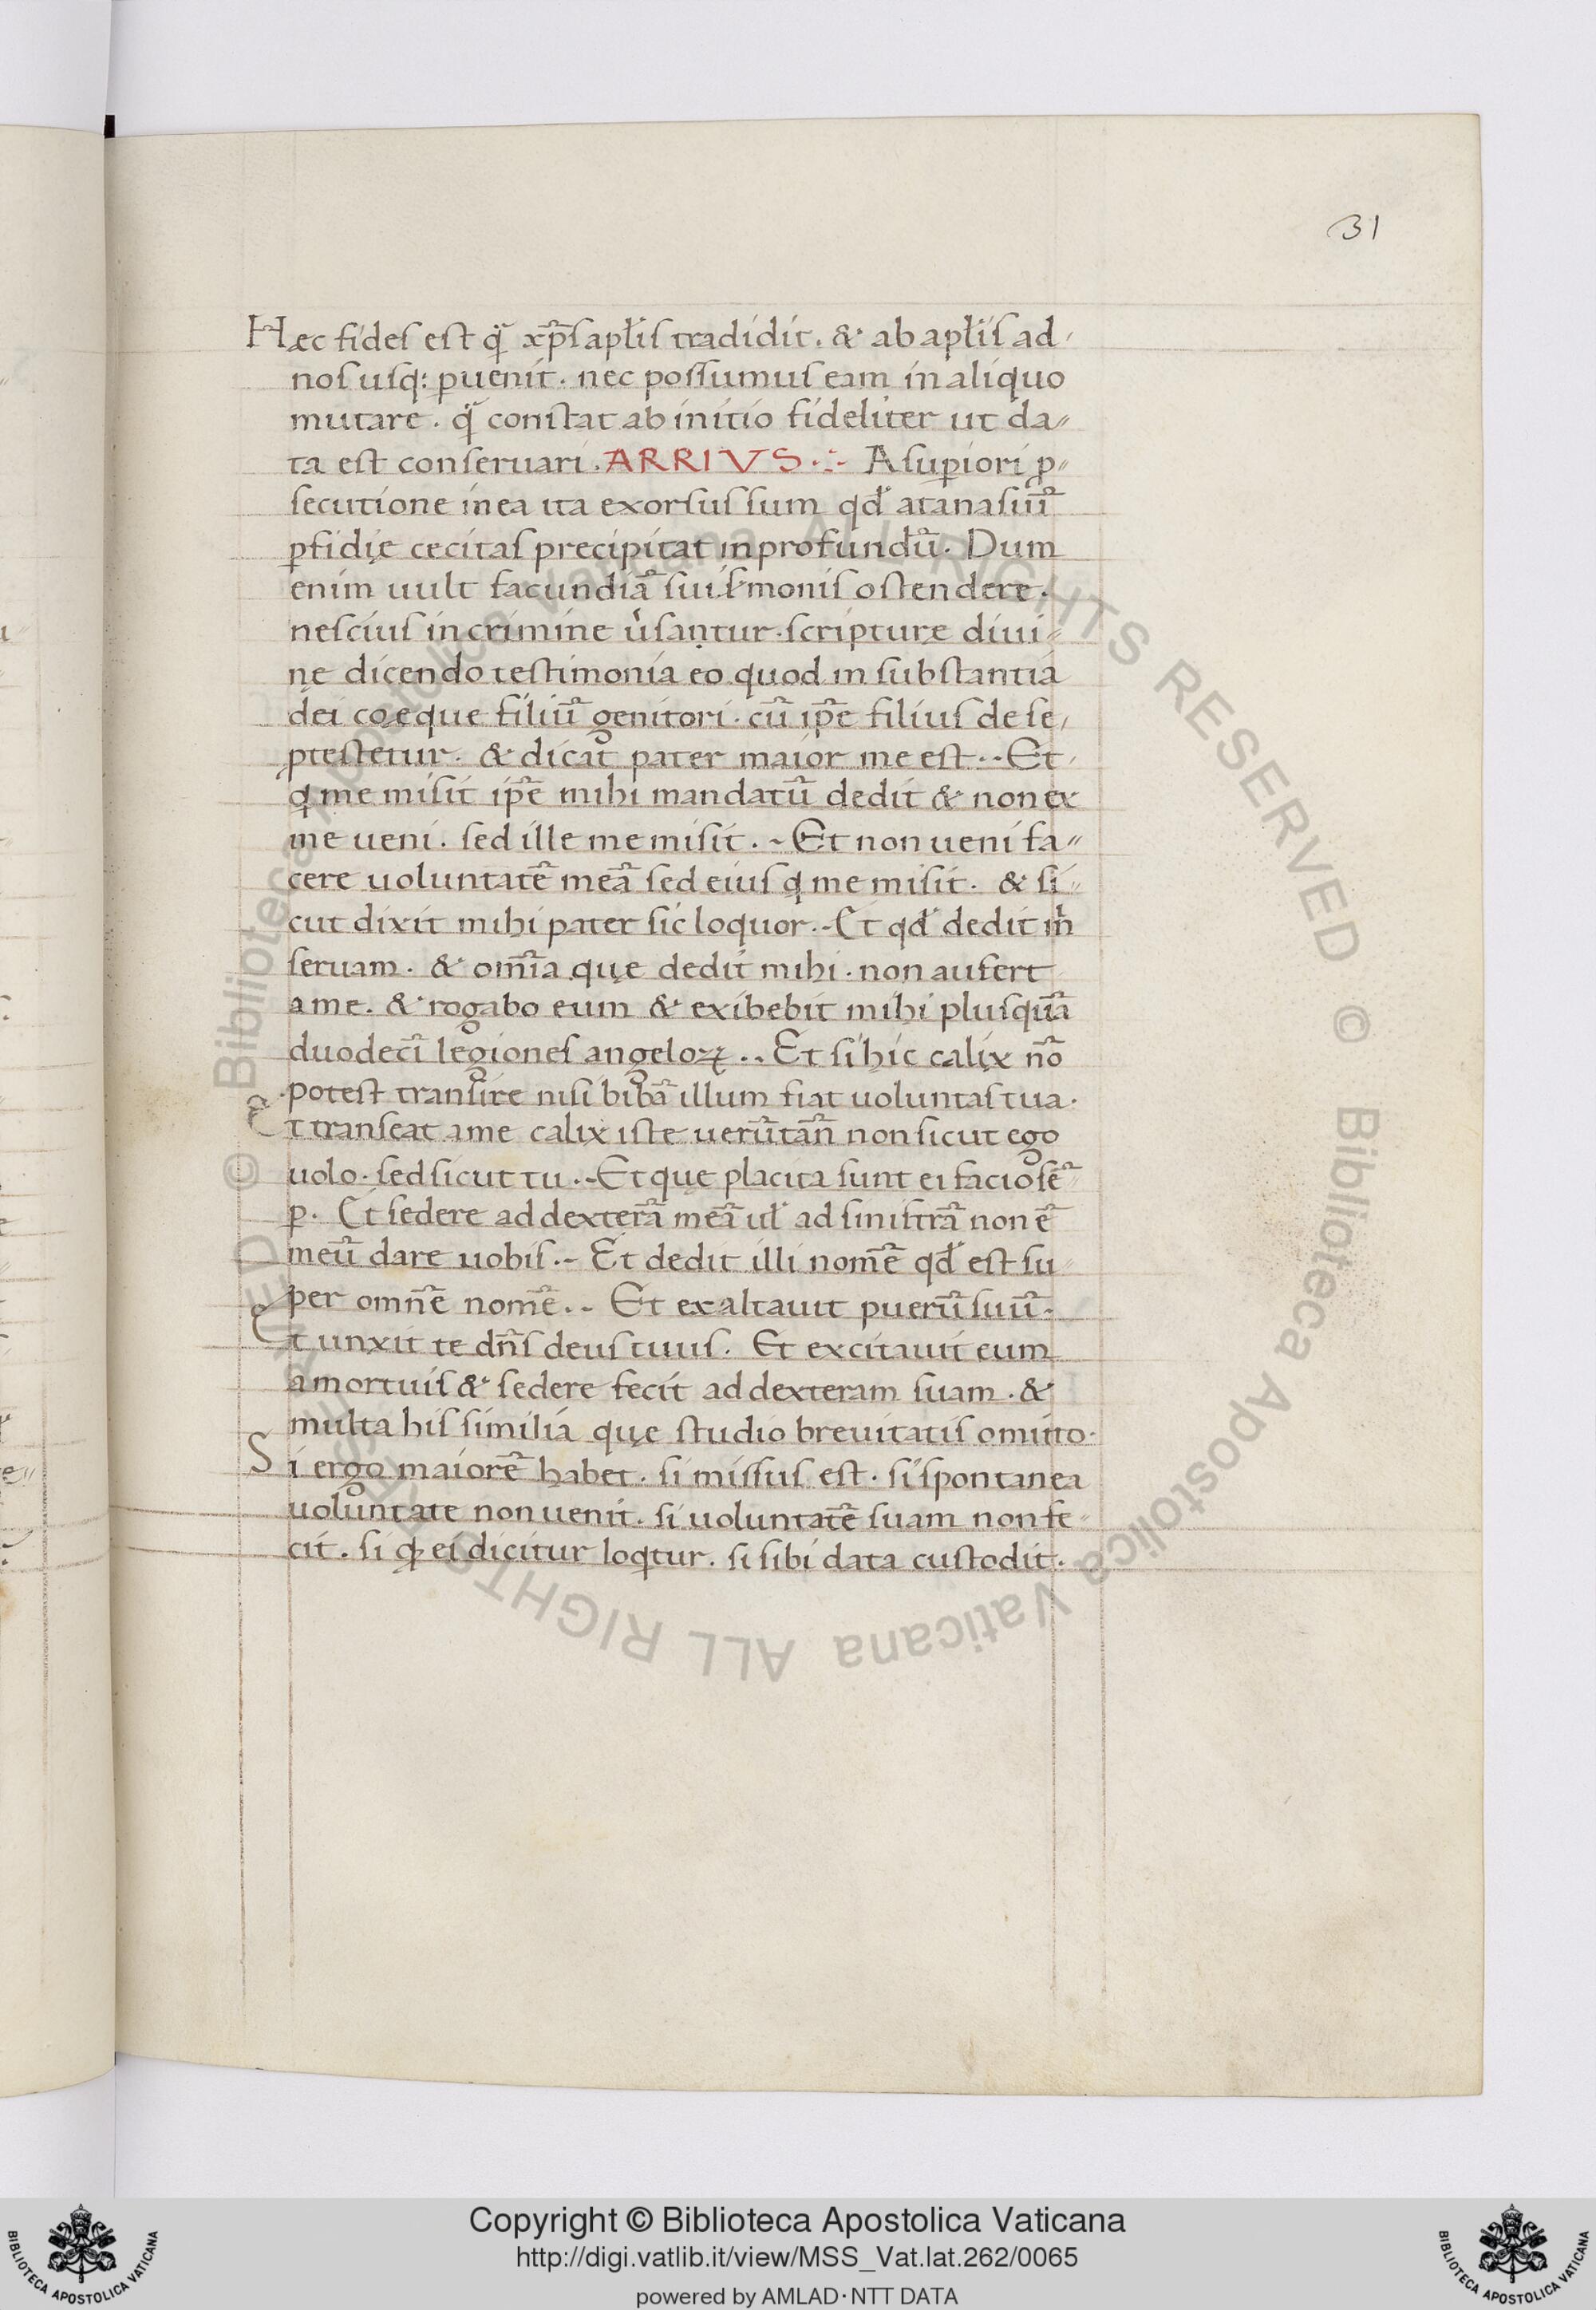 31
Hæc fides est qͣ xp̄s apl̄is tradidit. & ab apl̄is ad
nos usq: ꝑuenit. nec possumus eam in aliquo
mutare. qͣ constat ab initio fideliter ut da-
ta est conseruari. ARRIVS. A suꝑiori ꝓ-
secutione in ea ita exorsus sum qd̄ atanasiū
ꝑfidię cecitas precipitat in profundū. Dum
enim uult facundiā sui s̄monis ostendere.
nescius in crimine u̓santur. scripturę diui-
ne dicendo testimonia eo quod in substantia
dei coęque filiū genitori. cū ip̄e filius de se
ꝓtestetur. & dicat pater maior me est. Et
q me misit ip̄e mihi mandatū dedit & non ex
me ueni. sed ille me misit. Et non ueni fa-
cere uoluntatē meā sed eius q me misit. & si-
cut dixit mihi pater sic loquor. Et qd̄ dedit m̍
seruam. & om̄ia quę dedit mihi. non aufert
a me. & rogabo eum & exibebit mihi plusquā
duodecī legiones angeloꝝ. Et si hic calix nō
potest transire nisi bibā illum fiat uoluntas tua.
Et transeat a me calix iste uerūtān̄ non sicut ego
uolo. sed sicut tu. Et quę placita sunt ei facio sē
ꝑ. Et sedere ad dexterā meā ul̄ ad sinistrā non ē
meū dare uobis. Et dedit illi nom̄ē qd̄ est su
per omn̄ē nom̄ē. Et exaltauit puerū suū.
Et unxit te dn̄s deus tuus. Et excitauit eum
a mortuis & sedere fecit ad dexteram suam. &
multa his similia quę studio breuitatis omitto.
Si ergo maiorē habet. si missus est. si spontanea
uoluntate non uenit. si uoluntatē suam non fe-
cit. si qꝫ ei dicitur loqtur. si sibi data custodit.
© Biblioteca Apostolica Vaticana ALL RIGHTS RESERVED © Biblioteca Apostolica Vaticana ALL RIGHTS RESERVED
Copyright © Biblioteca Apostolica Vaticana
http://digi.vatlib.it/view/MSS_Vat.lat.262/0065
powered by AMLAD·NTT DATA
BIBLIOTECA APOSTOLICA VATICANA
BIBLIOTECA APOSTOLICA VATICANA